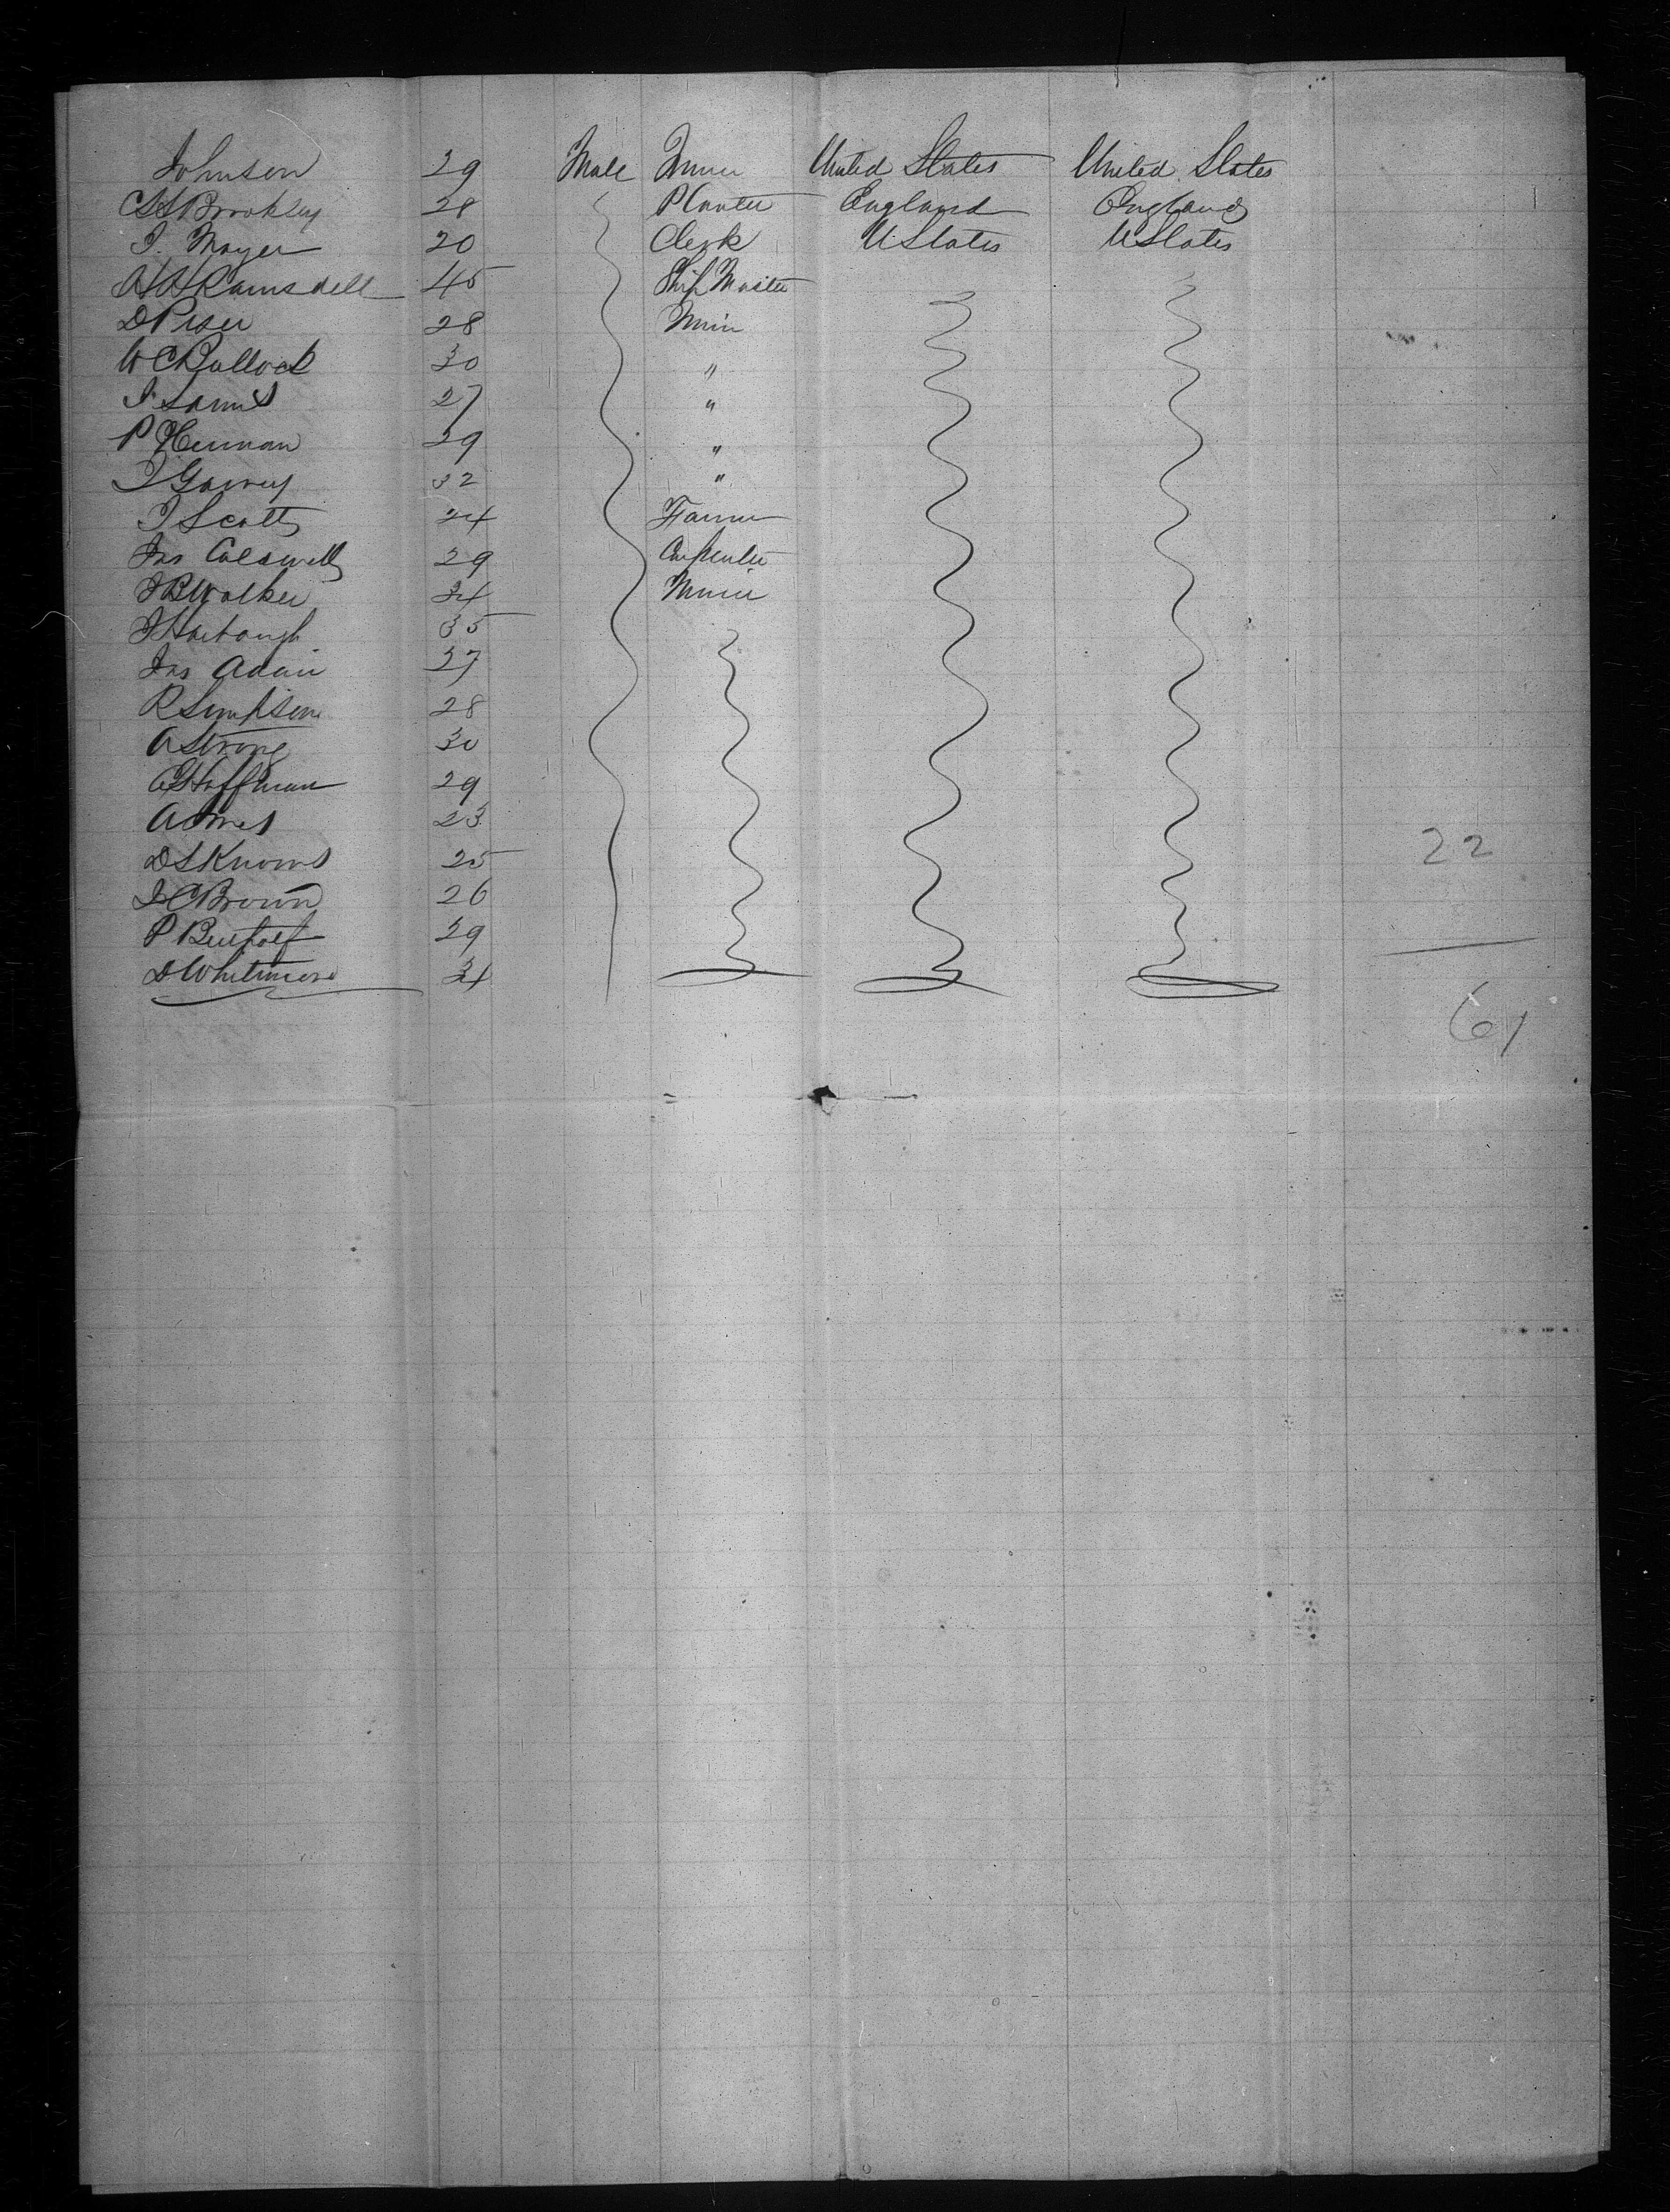 Johnson 29 Male Miner United States United States
C H Brooksey 28 Planter England England
J. Mayer 20 Clerk U States U States
A H Ramsdell 45 Ship Master
D Piser 28 Miner
W C Bullock 30 "
J. Samis 27 "
P Herman 29 "
J Garvey 32 "
J Scott 24 Farmer
Jas Caldwell 29 Carpenter
J B Walker 34 Miner
J Harbaugh 35
Jas Adair 27
R Simpson 28
A Strong 30
A G Hoffman 29
A Ames 23
D S Knows 25 22
J C Brown 26
P 29
D Whitmore 34
61